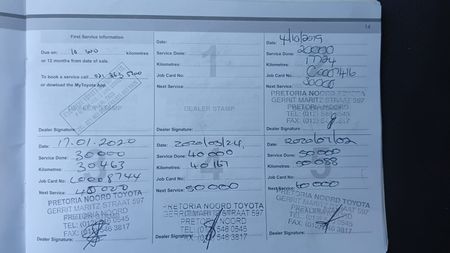 14
First Service Information
Due on: 10 000 kilometres
or 12 months from date of sale.
To book a service call
or dowload the MyToyota App.
DEALER STAMP
Dealer Signature:
Date:
Service Done: Kilometres
Kilometres:
Job Card No:
Next Service:
1
DEALER STAMP
Dealer Signature:
Date: 4/10/2019
Service Done: 20000
Kilometres:
Job Card No: C0007416
Next Service: 30000
PRETORIA NOORD TOYOTA
GERRIT MARITZ STRAAT 597
PRETORIA NOORD
TEL: (012)
FAX: (012)
Dealer Signature:
Date: 17.01.2020
Service Done: 30000
Kilometres: 30463
Job Card No: C0008744
Next Service:
PRETORIA NOORD TOYOTA
GERRIT MARITZ STRAAT 597
PRETORIA NOORD
TEL: (012) 546 0545
FAX: (012) 546 3817
Dealer Signature:
Date: 2020/03/24
Service Done: 40000
Kilometres: 40167
Job Card No:
Next Service: 50000
PRETORIA NOORD TOYOTA
GERRIT MARITZ STRAAT 597
NOORD
546 0545
546 3817
Dealer Signature:
Date: 2020/07/02
Service Done: 50000
Kilometres:
Job Card No:
Next Service: 60000
PRETORIA NOORD TOYOTA
GERRIT MARITZ STRAAT 597
Dealer Signature: